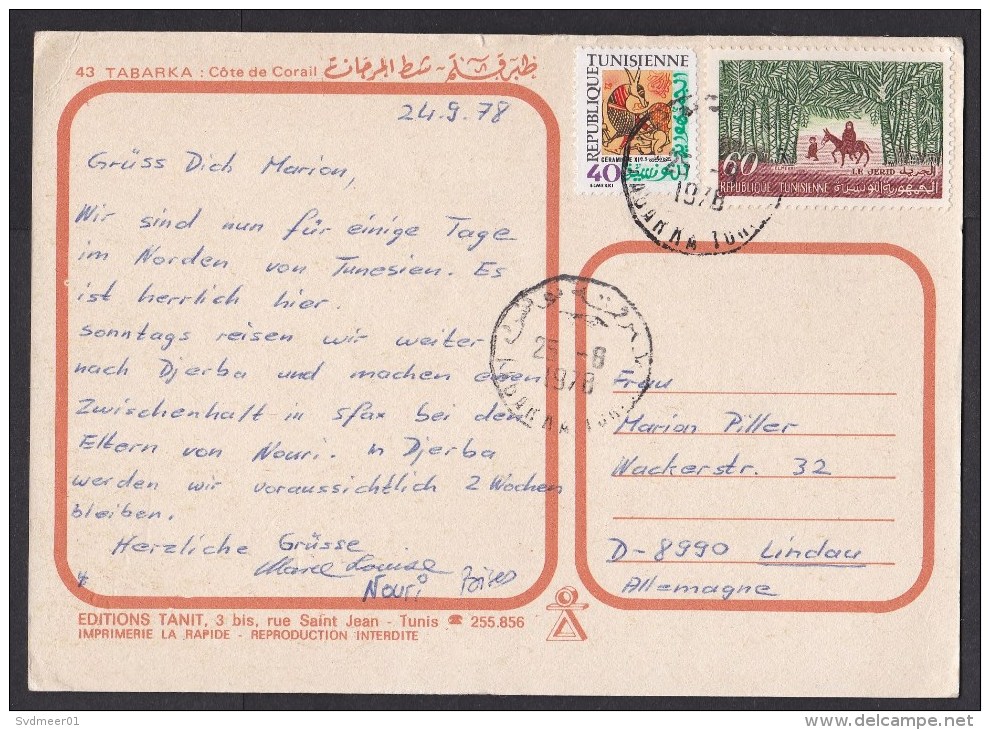 43 TABARKA : Côte de Corail
24.9.78
Grüss Dich Marion,
Wir sind nun für einige Tage
im Norden von Tunesien. Es
ist herrlich hier.
Sonntags reisen wir weiter
nach Djerba und machen einen
Zwischenhalt in Sfax bei den
Eltern von Nouri. In Djerba
werden wir voraussichtlich 2 Wochen
bleiben.
Herzliche Grüsse
Marie Louise
Nouri
EDITIONS TANIT, 3 bis, rue Saint Jean - Tunis ☎ 255.856
IMPRIMERIE LA RAPIDE - REPRODUCTION INTERDITE
REPUBLIQUE TUNISIENNE
الجمهورية التونسية
CERAMIQUE
40
60
LE JERID الجريد
REPUBLIQUE TUNISIENNE الجمهورية التونسية
1978
25 -8
1978
Frau
Marion Piller
Wackerstr. 32
D-8990 Lindau
Allemagne
Svdmeer01
delcampe.net